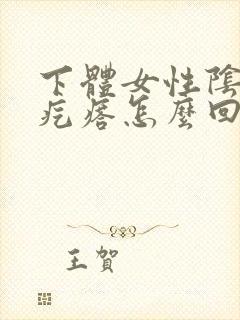 下體女性陰
疙瘩怎麼回
王賀